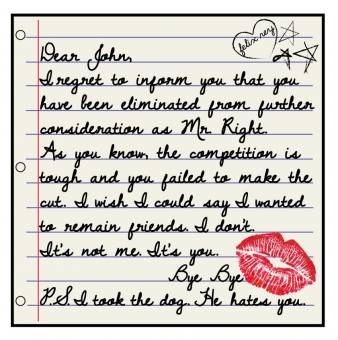 felix rey
Dear John,
I regret to inform you that you
have been eliminated from further
consideration as Mr. Right.
As you know, the competition is
tough and you failed to make the
cut. I wish I could say I wanted
to remain friends. I don't.
It's not me. It's you.
Bye Bye
P.S. I took the dog. He hates you.